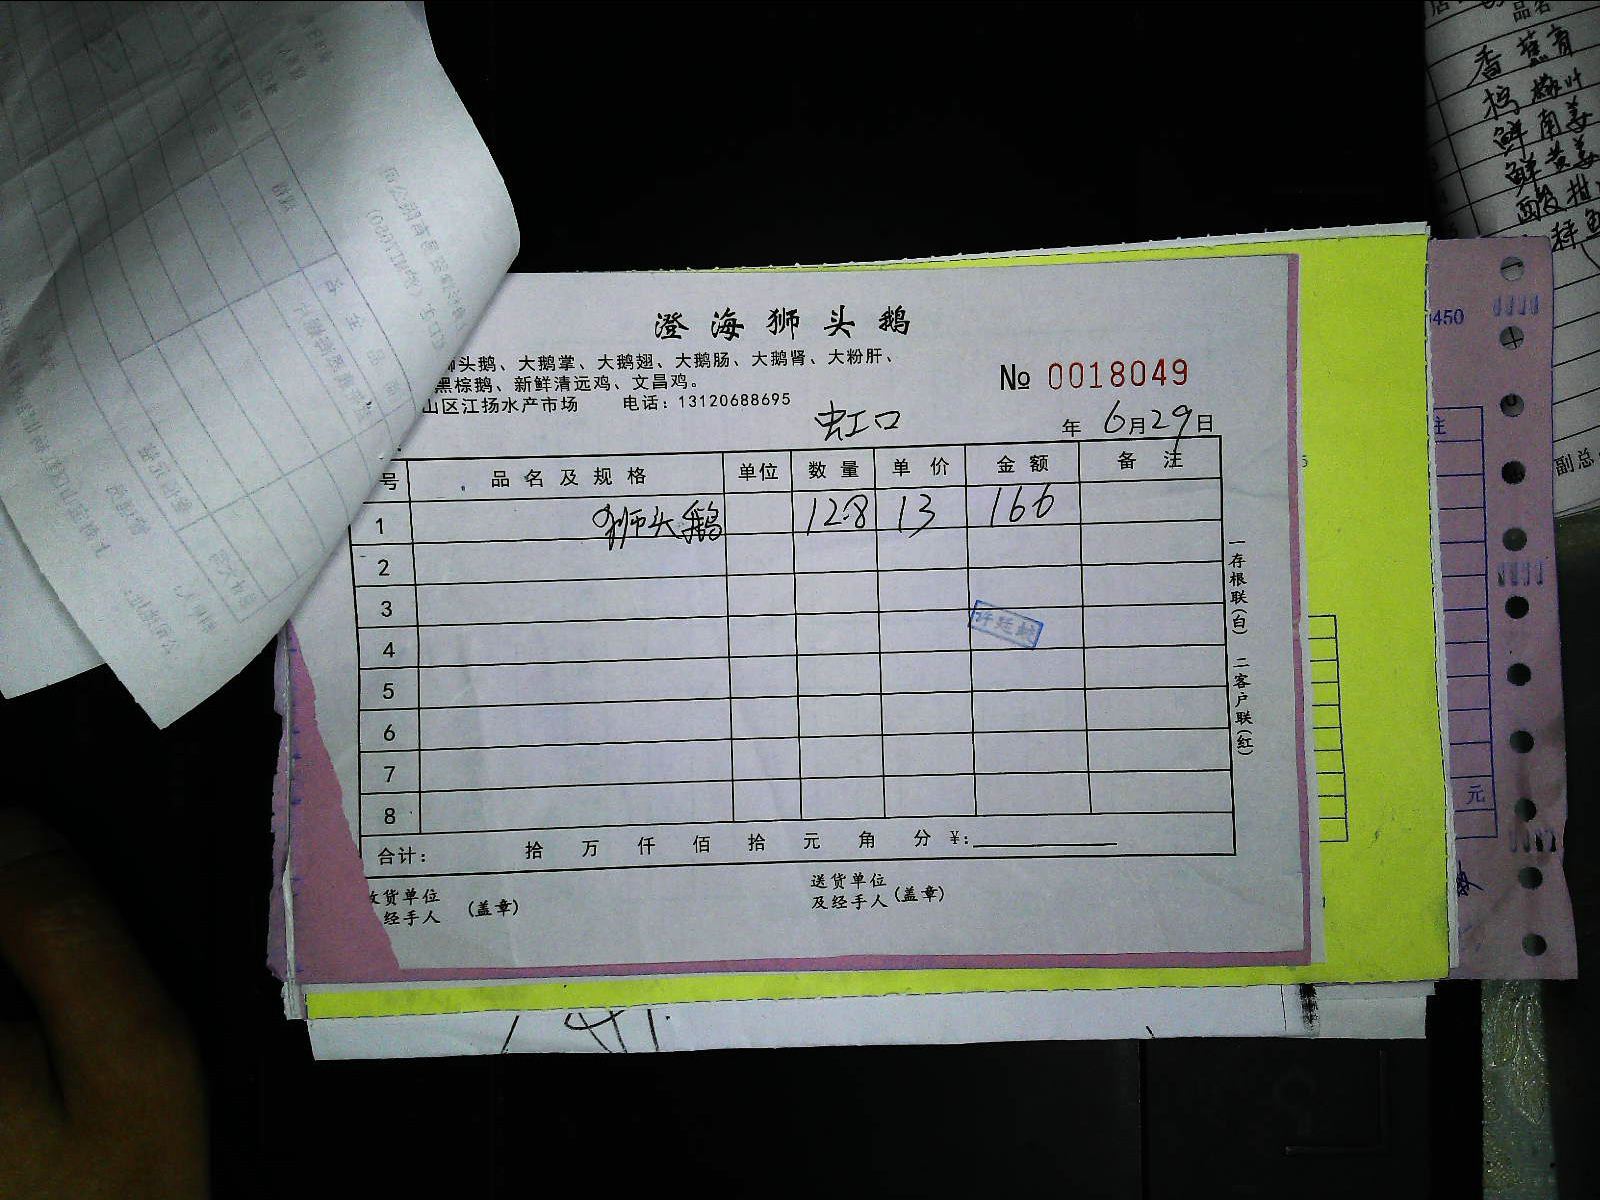 澄海狮头鹅
狮头鹅、大鹅掌、大鹅翅、大鹅肠、大鹅肾、大粉肝、
黑棕鹅、新鲜清远鸡、文昌鸡。
山区江扬水产市场 电话：13120688695
№ 0018049
虹口
年 6月29日
号 品名及规格 单位 数量 单价 金额 备注
1 狮头鹅 12.8 13 166
2
3
4
5
6
7
8
合计： 拾 万 仟 佰 拾 元 角 分 ¥:
收货单位
经手人 (盖章)
送货单位
及经手人 (盖章)
一存根联(白) 二客户联(红)
许廷
品名
香蕉青
柠檬叶
鲜南姜
鲜黄姜
酸柑
副总
450
注
元